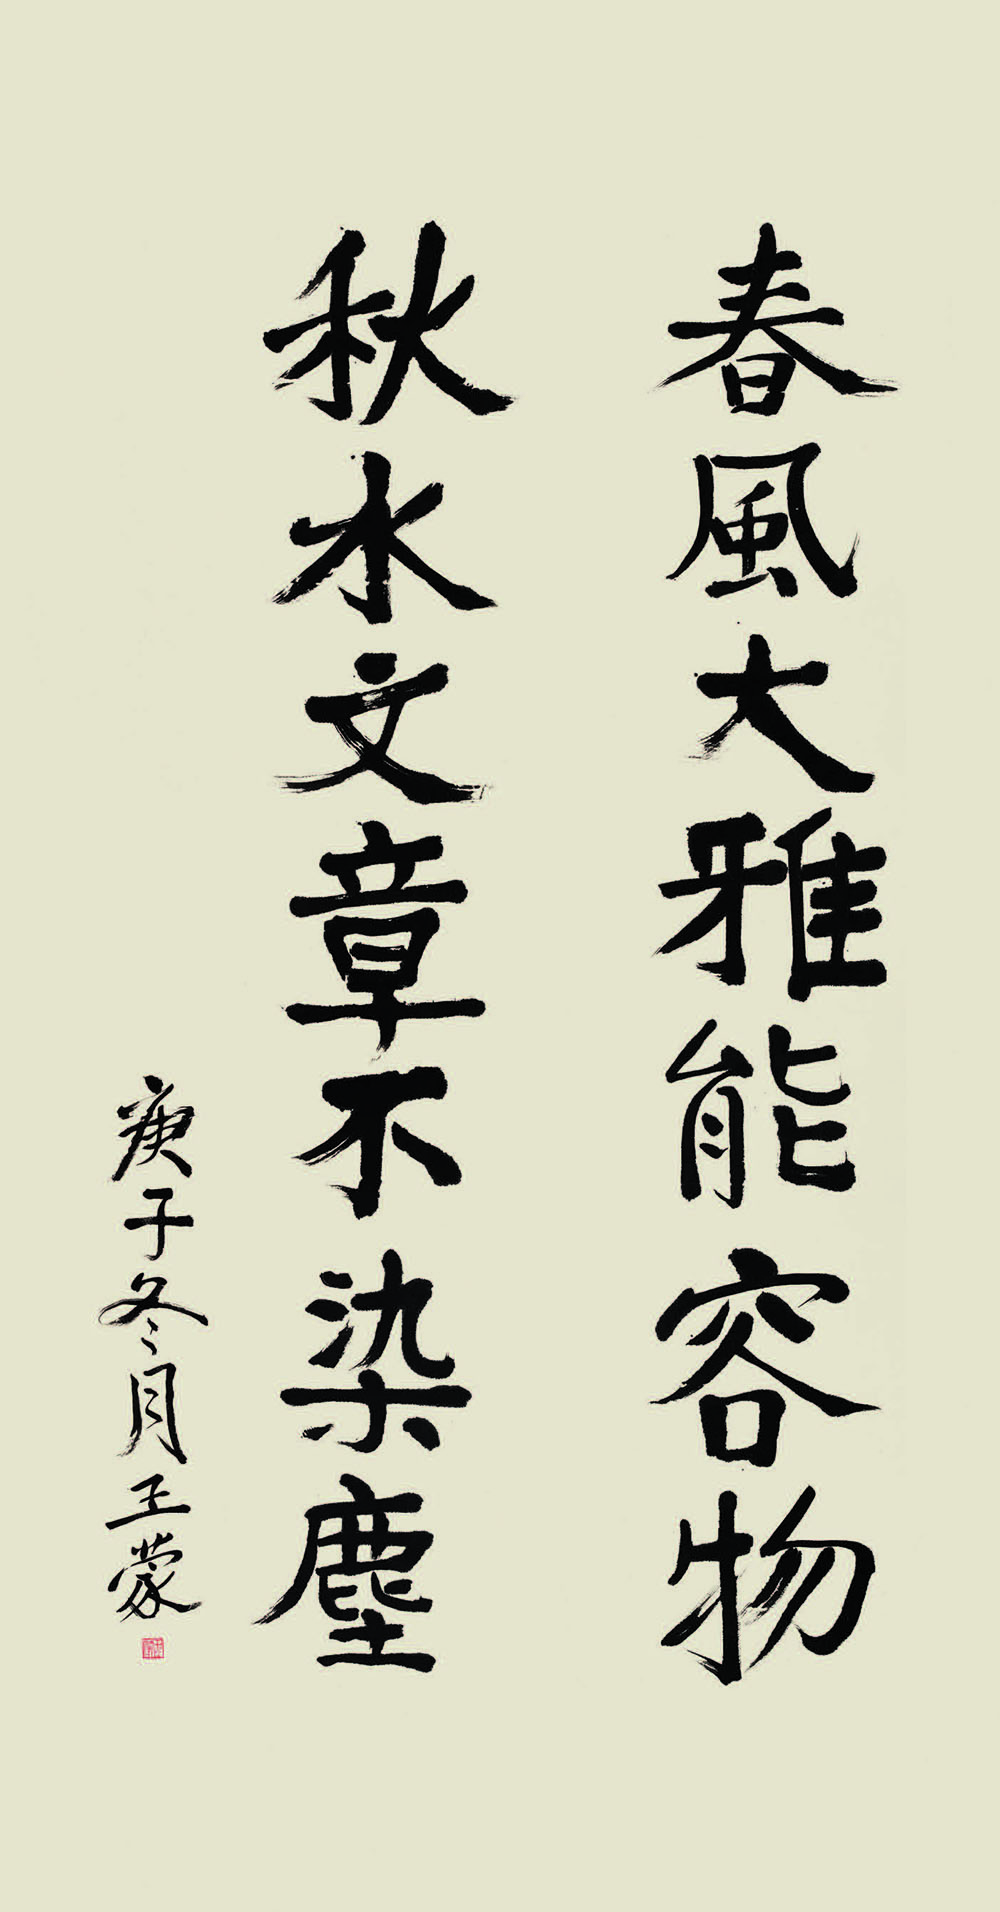 春風大雅能容物
秋水文章不染塵
庚子冬月王蒙